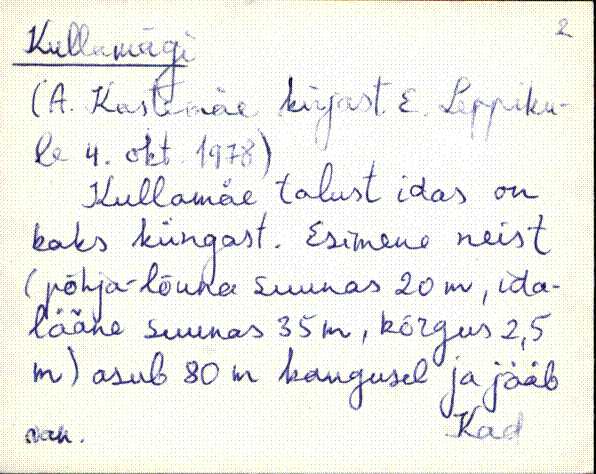 2
Kullamägi
(A. Kastemäe kirjast E. Leppiku-
le 4. okt. 1978)
Kullamäe talust idas on
kaks küngast. Esimene neist
(põhja-lõuna suunas 20 m, ida-
lääne suunas 35 m, kõrgus 2,5
m) asub 80 m kaugusel ja jääb
van. Kad